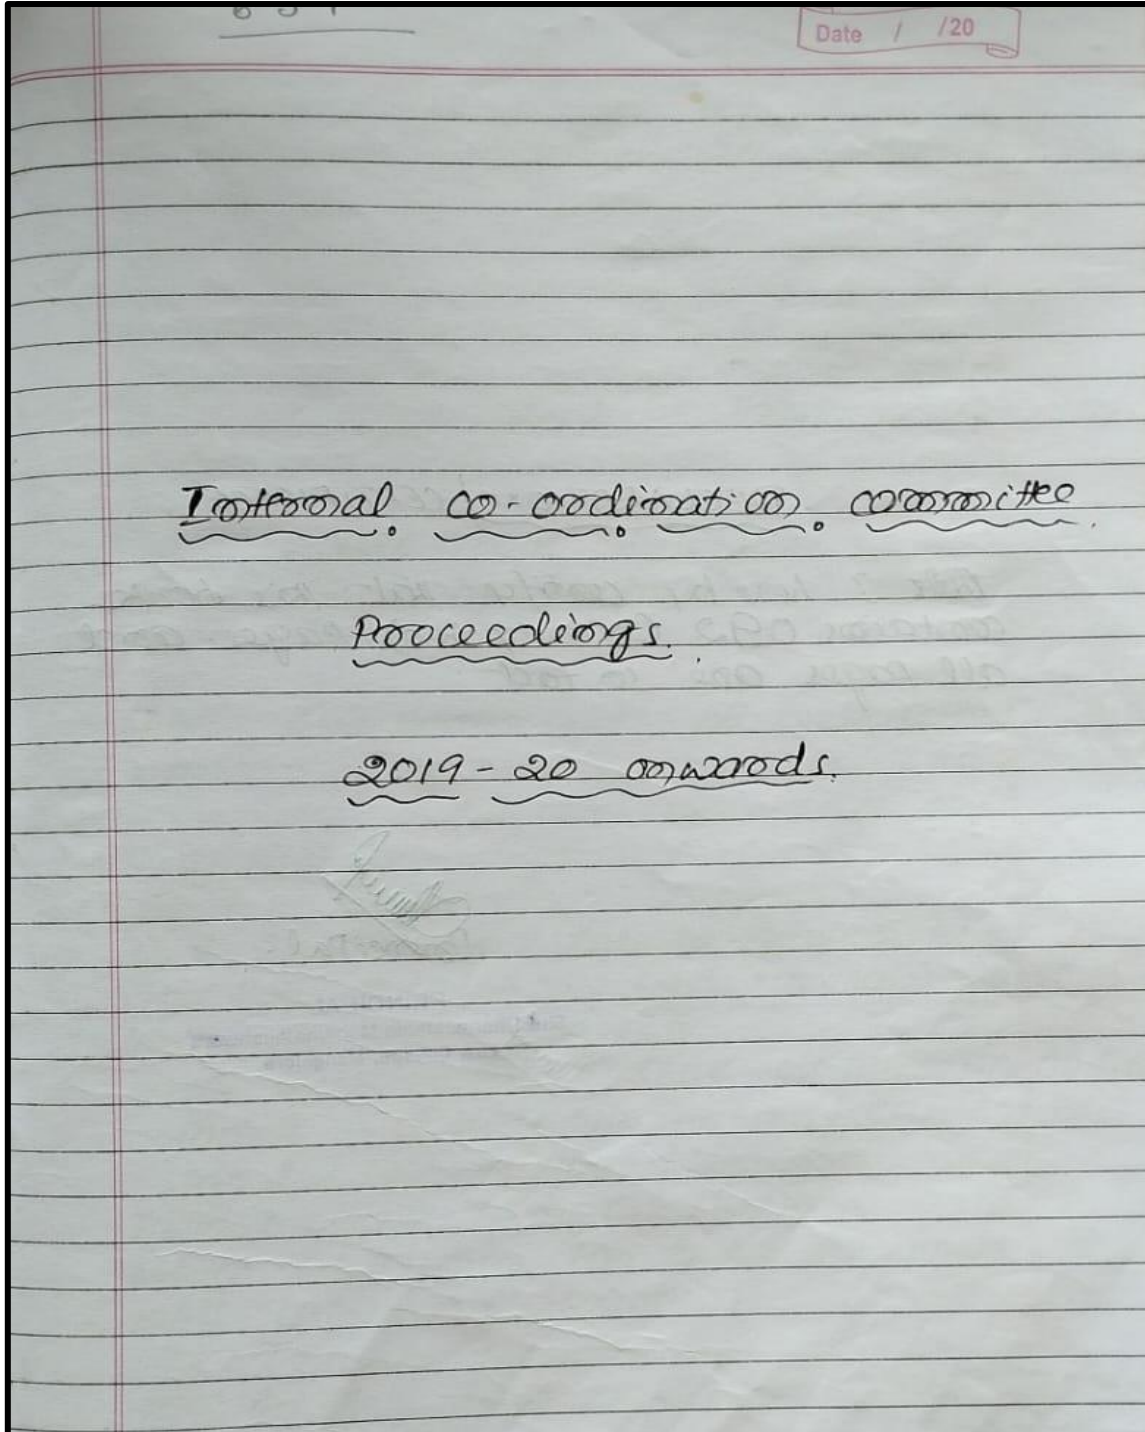 Date / /20
Internal co-ordination committee.
Proceedings.
2019-20 onwards.